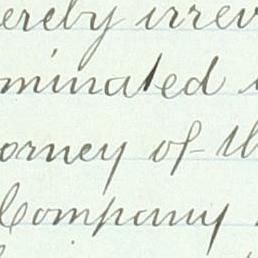 ereby irrev
minated
orney of th
Company